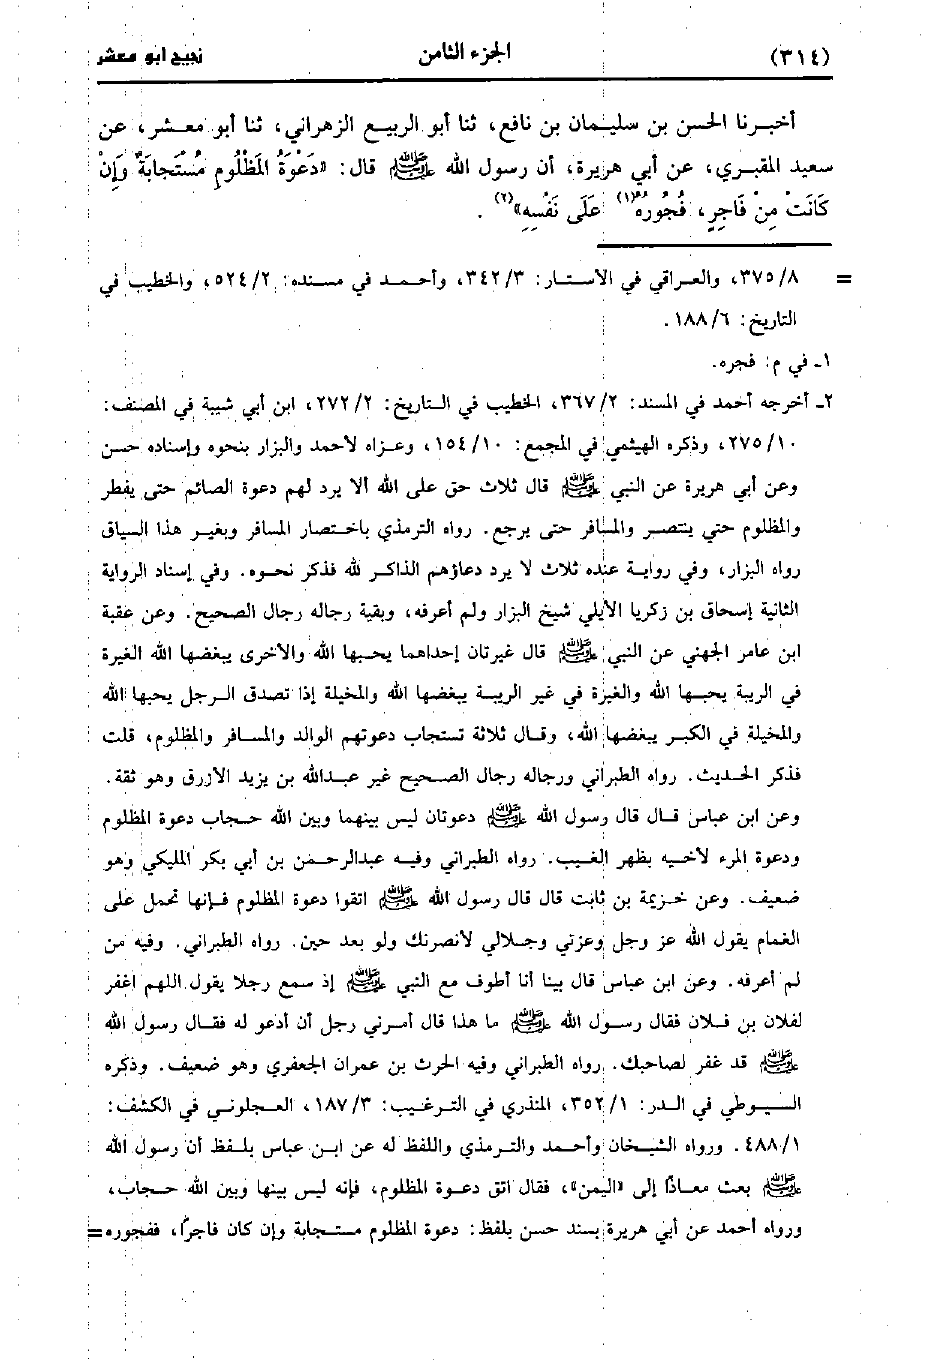 (٣١٤) الجزء الثامن نجيح ابو معشر
أخبرنا الحسن بن سليمان بن نافع، ثنا أبو الربيع الزهراني، ثنا أبو معشر، عن
سعيد المقبري، عن أبي هريرة، أن رسول الله ﷺ قال: «دَعْوَةُ المَظْلُومِ مُسْتَجابَةٌ وَإِنْ
كَانَتْ مِنْ فَاجِرٍ، فُجُورُهُ(١) عَلَى نَفْسِهِ»(٢) .
= ٣٧٥/٨، والعراقي في الاستار: ٣٤٢/٣، وأحمد في مسنده: ٥٢٤/٢، والخطيب في
التاريخ: ١٨٨/٦ .
١ـ في م: فجره.
٢ـ أخرجه أحمد في المسند: ٣٦٧/٢، الخطيب في التاريخ: ٢٧٢/٢، ابن أبي شيبة في المصنف:
٢٧٥/١٠، وذكره الهيثمي في المجمع: ١٥٤/١٠، وعزاه لأحمد والبزار بنحوه وإسناده حسن
وعن أبي هريرة عن النبي ﷺ قال ثلاث حق على الله ألا يرد لهم دعوة الصائم حتى يفطر
والمظلوم حتى ينتصر والمسافر حتى يرجع. رواه الترمذي باختصار المسافر وبغير هذا السياق
رواه البزار، وفي رواية عنده ثلاث لا يرد دعاؤهم الذاكر لله فذكر نحوه. وفي إسناد الرواية
الثانية إسحاق بن زكريا الأيلي شيخ البزار ولم أعرفه، وبقية رجاله رجال الصحيح. وعن عقبة
ابن عامر الجهني عن النبي ﷺ قال غيرتان إحداهما يحبها الله والأخرى يبغضها الله الغيرة
في الريبة يحبها الله والغيرة في غير الريبة يبغضها الله والمخيلة إذا تصدق الرجل يحبها الله
والمخيلة في الكبر يبغضها الله، وقال ثلاثة تستجاب دعوتهم الوالد والمسافر والمظلوم، قلت
فذكر الحديث. رواه الطبراني ورجاله رجال الصحيح غير عبدالله بن يزيد الأزرق وهو ثقة.
وعن ابن عباس قال قال رسول الله ﷺ دعوتان ليس بينهما وبين الله حجاب دعوة المظلوم
ودعوة المرء لأخيه بظهر الغيب. رواه الطبراني وفيه عبدالرحمن بن أبي بكر المليكي وهو
ضعيف. وعن خزيمة بن ثابت قال قال رسول الله ﷺ اتقوا دعوة المظلوم فإنها تحمل على
الغمام يقول الله عز وجل وعزتي وجلالي لأنصرنك ولو بعد حين. رواه الطبراني. وفيه من
لم أعرفه. وعن ابن عباس قال بينا أنا أطوف مع النبي ﷺ إذ سمع رجلا يقول اللهم اغفر
لفلان بن فلان فقال رسول الله ﷺ ما هذا قال أمرني رجل أن أدعو له فقال رسول الله
ﷺ قد غفر لصاحبك. رواه الطبراني وفيه الحرث بن عمران الجعفري وهو ضعيف. وذكره
السيوطي في الدر: ٣٥٢/١، المنذري في الترغيب: ١٨٧/٣، العجلوني في الكشف:
٤٨٨/١. ورواه الشيخان وأحمد والترمذي واللفظ له عن ابن عباس بلفظ أن رسول الله
ﷺ بعث معاذًا إلى «اليمن»، فقال اتق دعوة المظلوم، فإنه ليس بينها وبين الله حجاب،
ورواه أحمد عن أبي هريرة بسند حسن بلفظ: دعوة المظلوم مستجابة وإن كان فاجرًا، ففجوره =